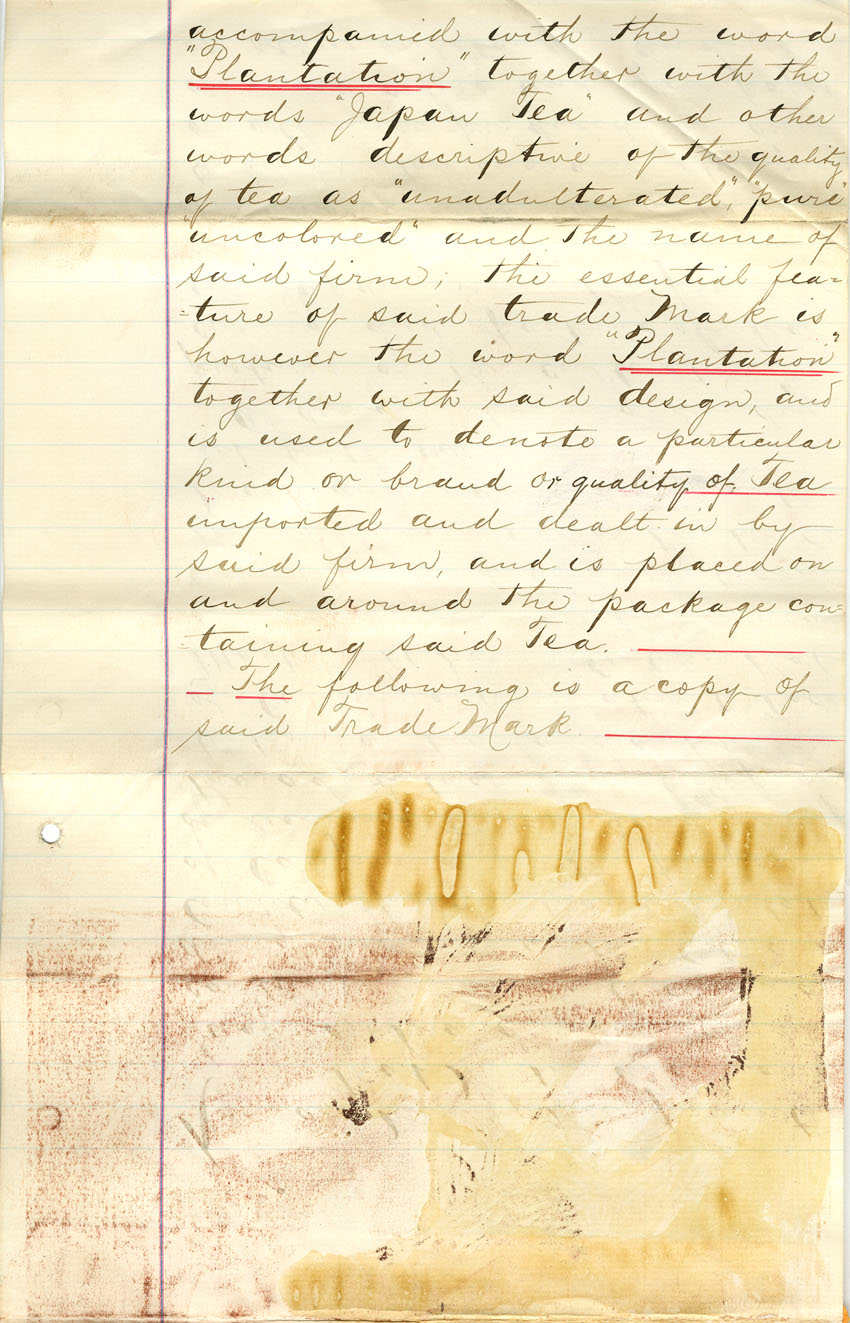 accompanied with the word
"Plantation" together with the
words "Japan Tea" and other
words descriptive of the quality
of tea as "unadulterated", "pure"
"uncolored" and the name of
said firm; the essential fea=
=ture of said trade Mark is
however the word "Plantation"
together with said design, and
is used to denote a particular
kind or brand or quality of Tea
imported and dealt in by
said firm, and is placed on
and around the package con=
=taining said Tea.
The following is a copy of
said Trade Mark.